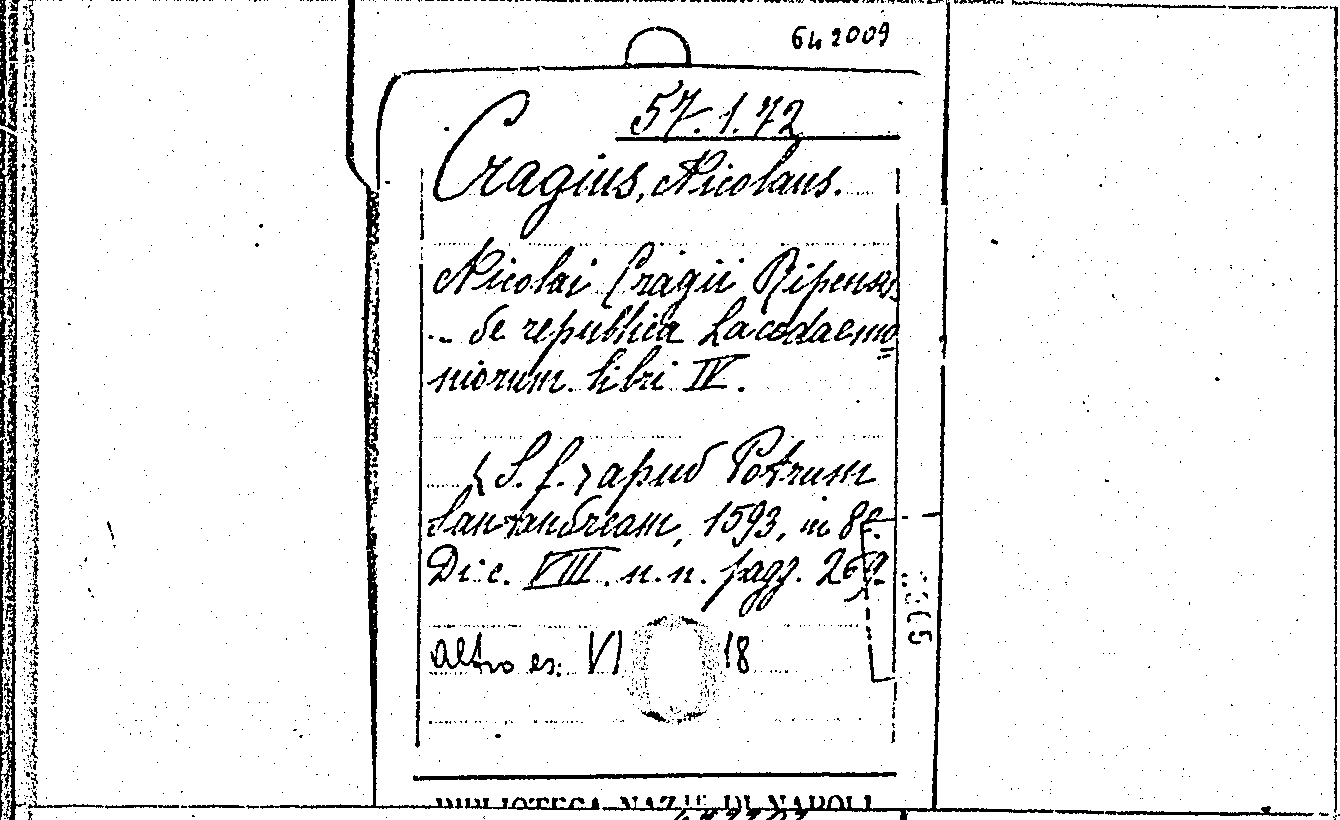 642009
57.1.72
Cragius, Nicolaus.
Nicolai Cragii Ripensis
... de republica Lacedaemo
niorum libri IV.
(S. l.) apud Petrum
Santandream, 1593, in 8º.
Di c. VIII n.n. pagg.
Altro es: VI 18
BIBLIOTECA NAZ.LE DI NAPOLI